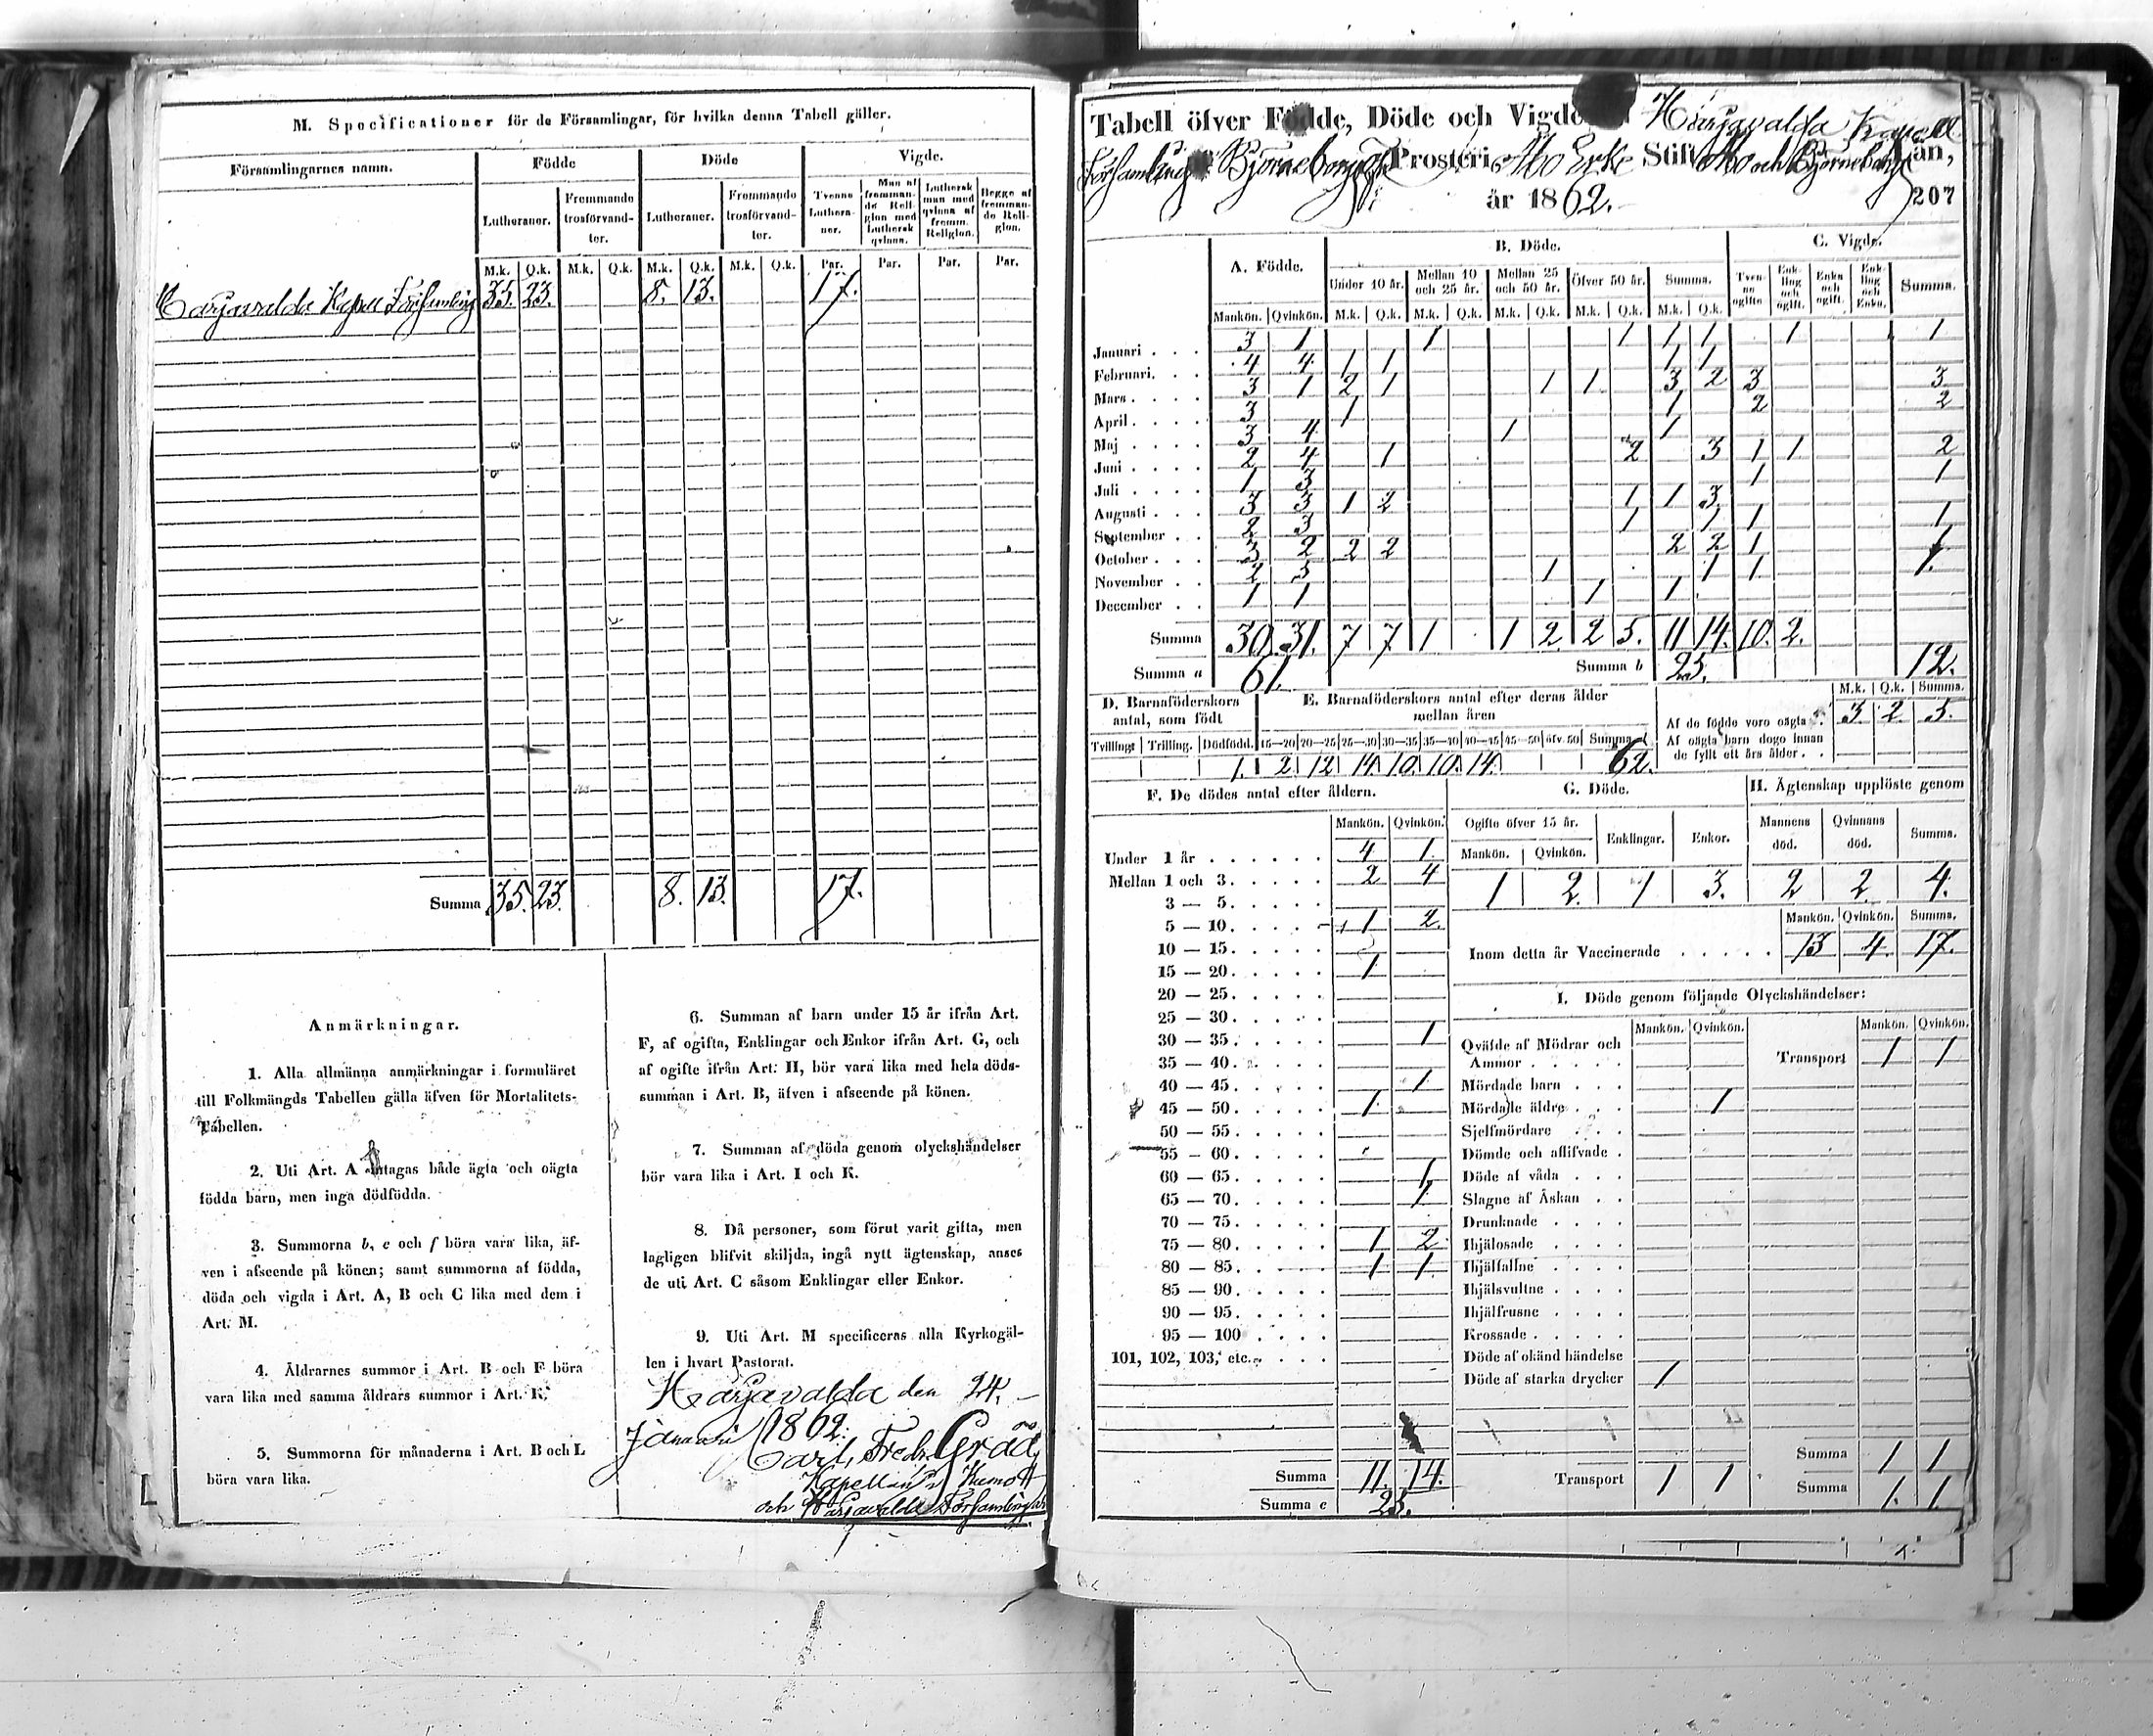 M. Specificationer för de Församlingar, för hvilka denna Tabell gäller.
Församlingarnes namn. Födde Döde Vigde.
Lutheraner. Fremmande trosförvandter. Lutheraner. Fremmande trosförvandter. Tvenne Lutheraner. Man af fremmande Religion med Luthersk qvinna. Luthersk man med qvinna af fremm. Religion. Begge af fremmande Religion.
M.k. Q.k. M.k. Q.k. M.k. Q.k. M.k. Q.k. Par. Par. Par. Par.
Harjavalda Kapell Församling 35. 23. 8. 13. 17.
Summa 35. 23. 8. 13. 17.
Anmärkningar.
1. Alla allmänna anmärkningar i formuläret
till Folkmängds Tabellen gälla äfven för Mortalitets-
Tabellen.
2. Uti Art. A intagas både ägta och oägta
födda barn, men inga dödfödda.
3. Summorna b, e och f böra vara lika, äf-
ven i afseende på könen; samt summorna af födda,
döda och vigda i Art. A, B och C lika med dem i
Art. M.
4. Åldrarnes summor i Art. B och F böra
vara lika med samma åldrars summor i Art. K.
5. Summorna för månaderna i Art. B och L
böra vara lika.
6. Summan af barn under 15 år ifrån Art.
F, af ogifta, Enklingar och Enkor ifrån Art. G, och
af ogifte ifrån Art. H, bör vara lika med hela döds-
summan i Art. B, äfven i afseende på könen.
7. Summan af döda genom olyckshändelser
bör vara lika i Art. I och K.
8. Då personer, som förut varit gifta, men
lagligen blifvit skiljda, ingå nytt ägtenskap, anses
de uti Art. C såsom Enklingar eller Enkor.
9. Uti Art. M specificeras alla Kyrkogäl-
len i hvart Pastorat.
Harjavalda den 24.
Januari 1862.
Carl Fredr. Gråå
Kapellan i Kumo
och Harjavalda Församlingar
Tabell öfver Födde, Döde och Vigde Harjavalda Kapell
Församling Björneborgs Prosteri Åbo Erke Stift Åbo och Björneborgs Län,
år 1862.
207
A. Födde. B. Döde. C. Vigde.
Under 10 år. Mellan 10 och 25 år. Mellan 25 och 50 år. Öfver 50 år. Summa. Tvenne ogifte Enkling och ogift. Enka och ogift. Enkling och Enka. Summa.
Mankön. Qvinkön. M.k. Q.k. M.k. Q.k. M.k. Q.k. M.k. Q.k. M.k. Q.k.
Januari . . . 3 1 1 1 1 1 1 1
Februari. . . 4 4 1 1 1 1
Mars . . . . 3 1 2 1 1 1 3 2 3 3
April . . . . 3 1 1 2 2
Maj . . . . 3 4 1 1
Juni . . . . 2 4 1 2 3 1 1 2
Juli . . . . 1 3 1 1
Augusti . . . 3 3 1 2 1 1 3
September . . 2 3 1 1 1 1
October . . . 3 2 2 2 2 2 1 1
November . . 2 3 1 1 1 1.
December . . 1 1 1 1
Summa 30. 31. 7 7 1 1 2 2 5. 11 14. 10. 2.
Summa a 61. Summa b 25. 12.
D. Barnaföderskors antal, som födt
E. Barnaföderskors antal efter deras ålder mellan åren
Tvillingt Trilling. Dödfödd. 15—20 20—25 25—30 30—35 35—40 40—45 45—50 öfv. 50 Summa
1. 2 12 14 10. 10. 14. 62.
M.k. Q.k. Summa.
Af de födde voro oägta . 3 2 5.
Af oägta barn dogo innan
de fyllt ett års ålder . .
F. De dödes antal efter åldern.
Mankön. Qvinkön.
Under 1 år . . . . . . 4 1.
Mellan 1 och 3. . . . . 2 4
3 — 5. . . . .
5 — 10. . . . . 1 2.
10 — 15. . . . .
15 — 20. . . . . 1
20 — 25. . . . .
25 — 30. . . . .
30 — 35. . . . . 1
35 — 40. . . . .
40 — 45. . . . . 1.
45 — 50. . . . . 1
50 — 55. . . . .
55 — 60. . . . .
60 — 65. . . . . 1
65 — 70. . . . . 1
70 — 75. . . . .
75 — 80. . . . . 1 2
80 — 85. . . . . 1 1
85 — 90. . . . .
90 — 95. . . . .
95 — 100 . . . .
101, 102, 103, etc. . . . .
Summa 11. 14.
Summa e 25.
G. Döde.
Ogifte öfver 15 år. Enklingar. Enkor.
Mankön. Qvinkön.
1 2. 1 3.
H. Ägtenskap upplöste genom
Mannens död. Qvinnans död. Summa.
2 2 4.
Mankön. Qvinkön. Summa.
Inom detta år Vaccinerade . . . . . 13 4 17.
I. Döde genom följande Olyckshändelser:
Mankön. Qvinkön. Mankön. Qvinkön.
Qväfde af Mödrar och
Ammor . . . . . Transport 1 1
Mördade barn . . .
Mördade äldre . . . 1
Sjelfmördare . . .
Dömde och aflifvade .
Döde af våda . . .
Slagne af Åskan . .
Drunknade . . . .
Ihjälosade . . . .
Ihjälfallne . . . .
Ihjälsvultne . . . .
Ihjälfrusne . . . .
Krossade . . . . .
Döde af okänd händelse
Döde af starka drycker 1
Summa 1 1
Transport 1 1
Summa 1. 1